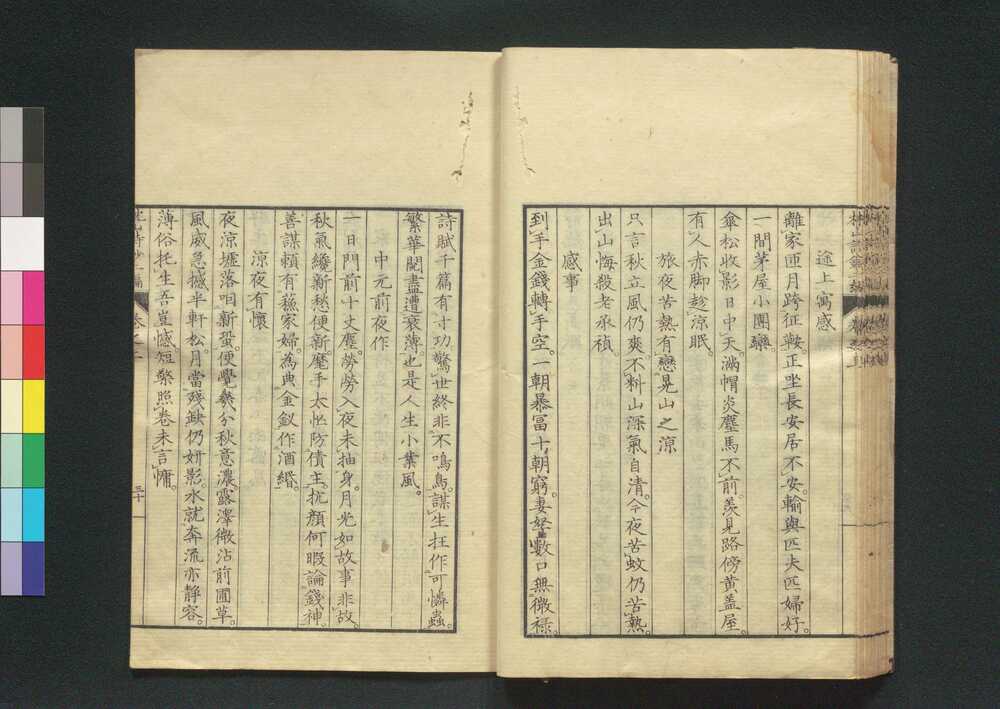 途上寓感
離家匝月跨征鞍。正坐長安居不安。輸與匹夫匹婦好。
一間茅屋小團欒。
傘松收影日中天。滿帽炎塵馬不前。羨見路傍黄盖屋。
有人赤脚趁涼眠。
旅夜苦熱有戀晃山之涼
只言秋立風仍爽。不料山深氣自清。今夜苦蚊仍苦熱。
出山悔殺老承禎
感事
到手金錢轉手空。一朝暴冨十朝窮。妻孥數口無微禄。
詩賦千篇有寸功。驚世終非不鳴鳥。謀生抂作可憐蟲。
繁華閲盡遭衰薄。也是人生小業風。
中元前夜作
一日門前十丈塵。勞勞入夜未抽身。月光如故事非故。
秋氣纔新愁便新。麾手太怯防債主。抗顔何暇論錢神。
善謀頼有蘓家婦。為典金釵作酒緡。
涼夜有懷
夜涼壚落咽新蛩。便覺幾分秋意濃。露澤微沾前圃草。
風威急撼半軒松。月當殘缺仍妍影。水就奔流亦静容。
薄俗托生吾豈憾短檠照卷未言慵。
三十一